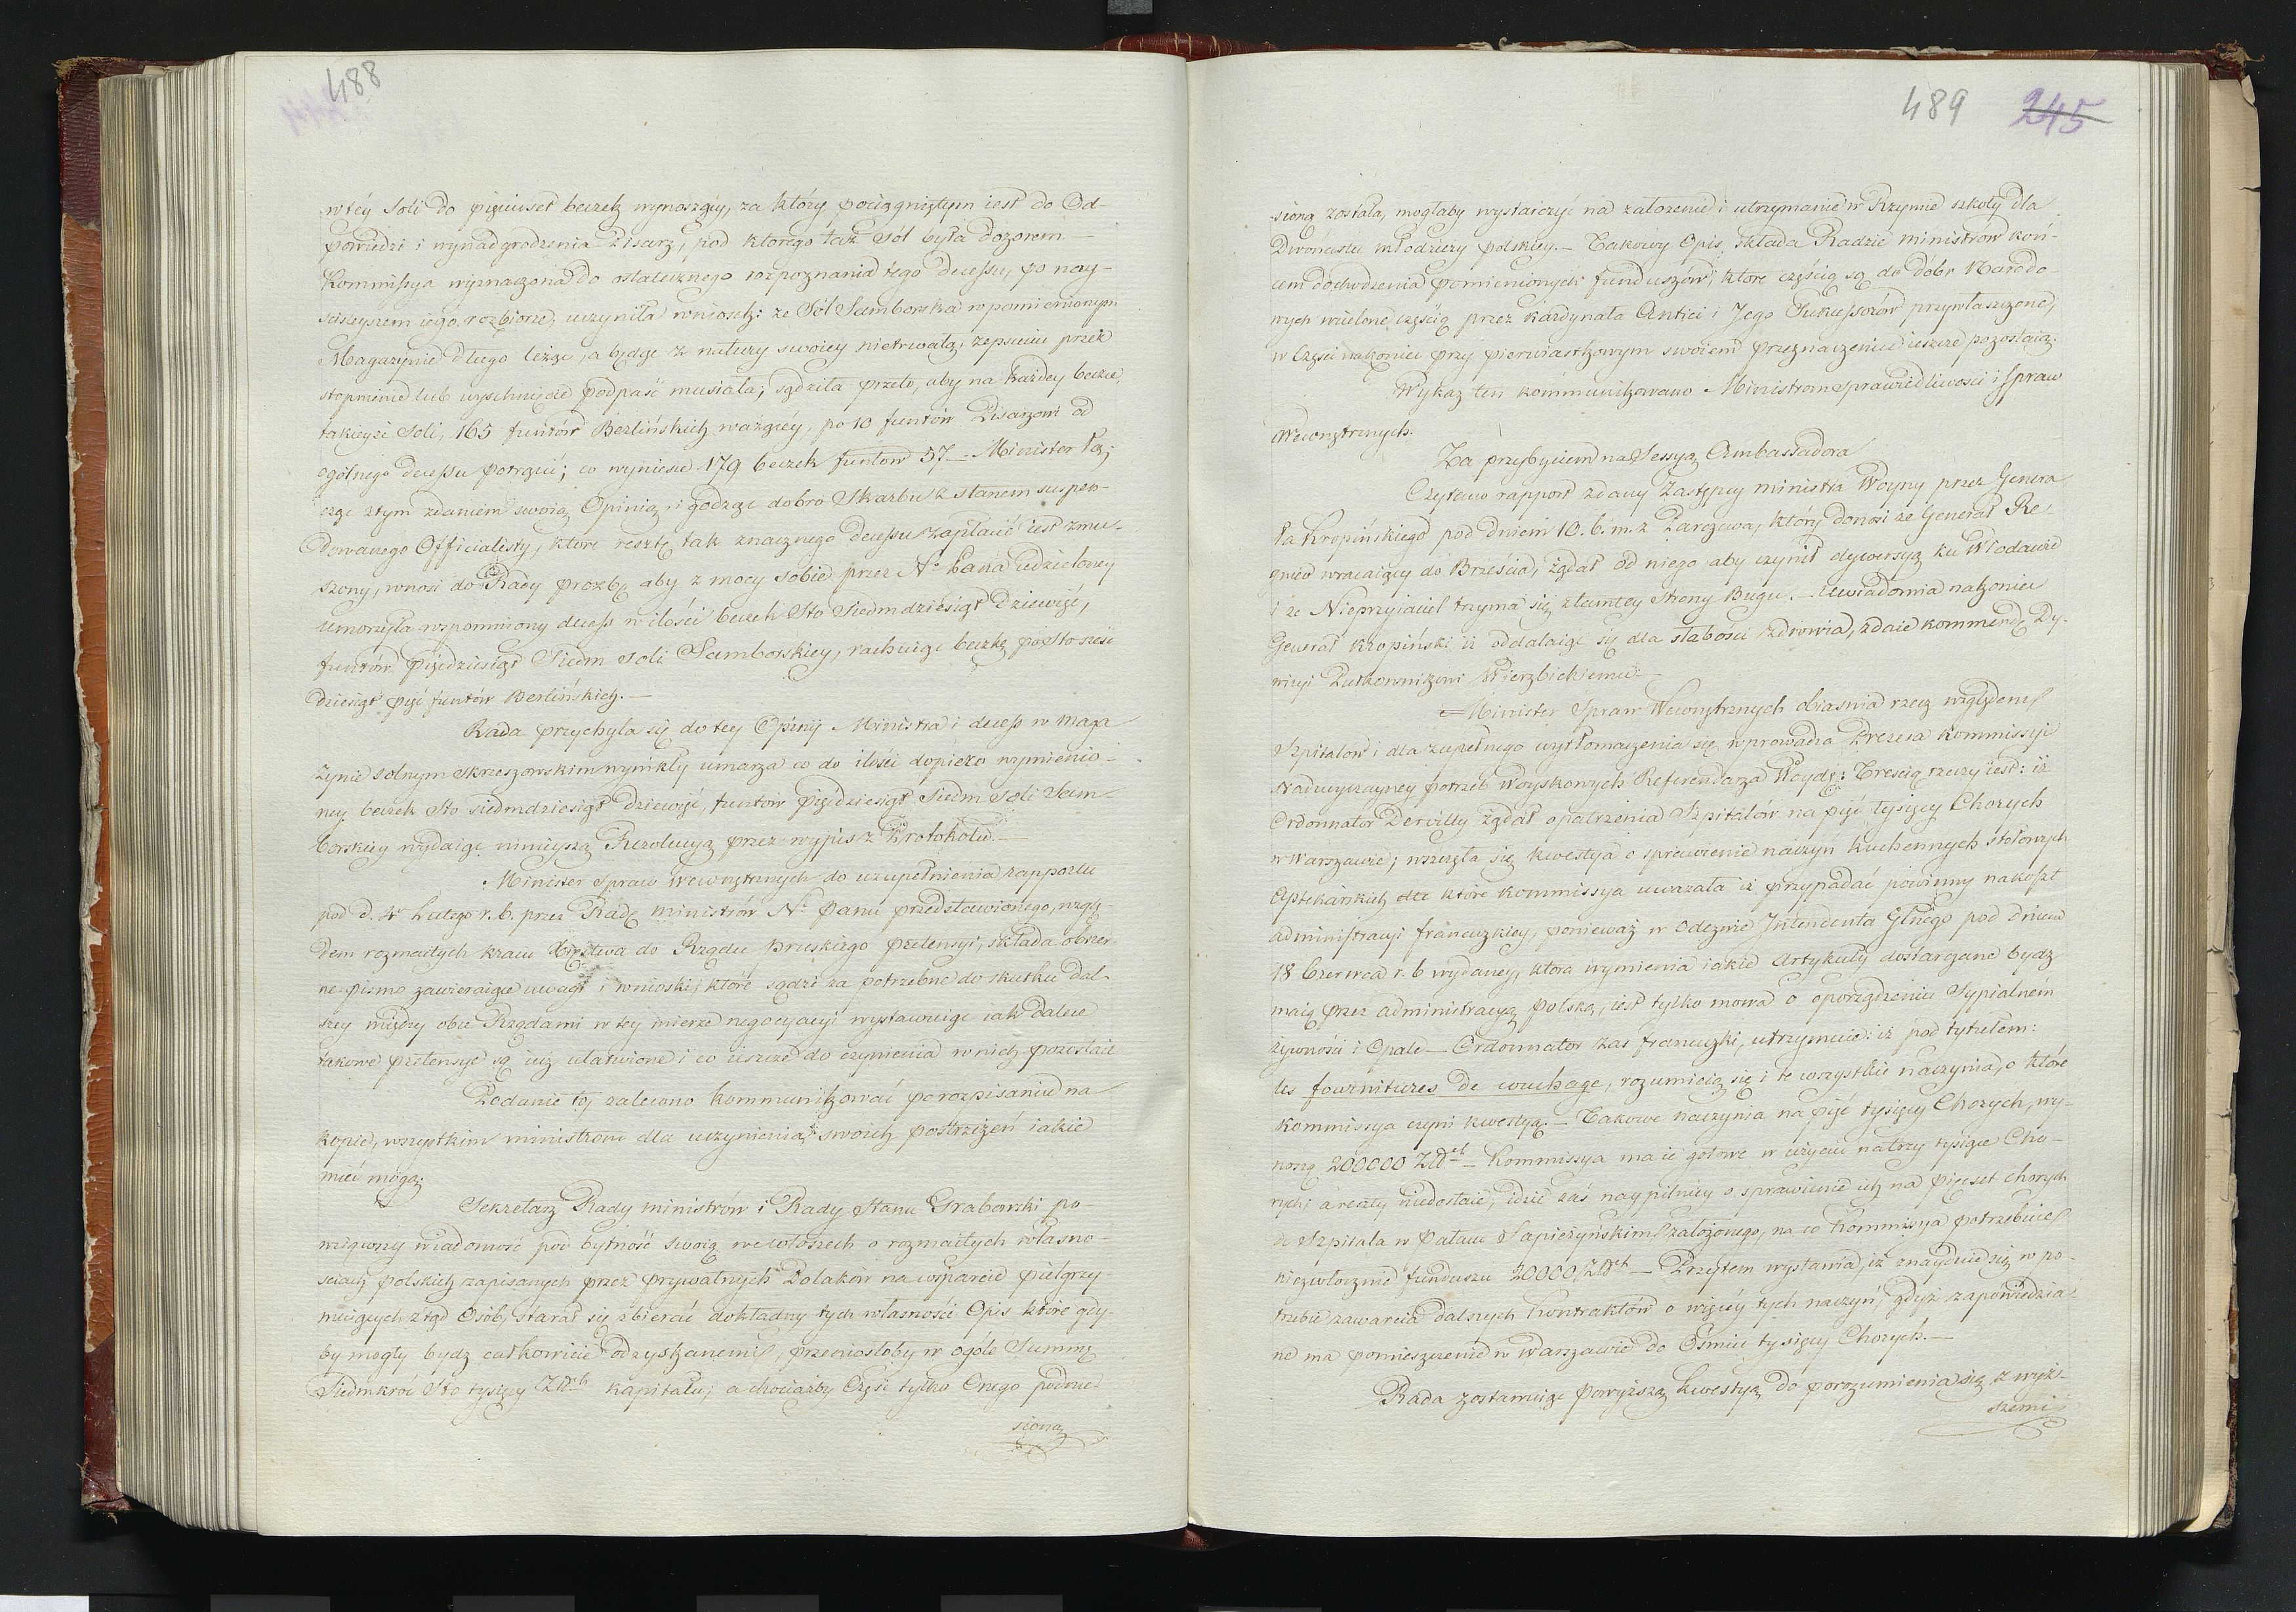 488
w téy Soli do pięciuset beczek wynoszący, za który pociągniętym iest do Od-
powiedzi i wynadgrodzenia Pisarz, pod ktorego taż Sól była dozorem —
Kommissya wyznaczona do ostatecznego rozpoznania tego decessu, po nay-
ścisleyszem iego rozbiorze, uczyniła wniosek: ze Sól Samborska w pomienionym
Magazynie długo leżąc, a będąc z natury swoiey nietrwałą, zepsuciu przez
stopnienie lub uyschnięcie podpaść musiała; sądziła przeto, aby na każdey beczce
takieyże Soli, 165 funtów Berlińskich ważącéy, po 10 funtów Pisarzowi od
ogólnego decessu potrącić; co wyniesie 179 beczek funtow 57 — Minister łą-
cząc z tym zdaniem swoią Opinią, i godząc dobro Skarbu z stanem suspen-
dowanego Officialisty, ktore resztę tak znacznego decessu zapłacić iest zmu-
szony, wnosi do Rady prozbę aby z mocy sobie przez N. Pana udzieloney
umorzyła wspomniony decess w ilości beczek Sto Siedmdziesiąt Dziewięć,
funtów pięćdziesiąt Siedm Soli Samborskiey, rachuiąc beczkę po Sto sześć
dziesiąt pięć funtów Berlińskich. —
Rada przychyla się do tey Opinij Ministra i decess w maga
zynie solnym skrzeszowskim wynikły umarza co do ilości dopiero wymienio-
ney beczek Sto siedmdziesiąt dziewięć, funtów pięćdziesiąt Siedm Soli Sam
borskiey wydaiąc ninieyszą Rezolucyą przez wypis z Protokołu. —
Minister Spraw Wewnętrznych do uzupełnienia rapportu
pod d. 4 Lutego r. b. przez Radę ministrów N. Panu przedstawionego, wzglę-
dem rozmaitych kraiu Xięstwa do Rządu pruskiego pretensyi, składa obszer-
ne pismo zawieraiące uwagi i wnioski, które sądzi za potrzebne do skutku dal-
szey między obu Rządami w tey mierze negocyacyi wystawuiąc iak dalece
takowe pretensye są iuz ułatwione i co ieszcze do czynienia w nich pozostaie
Podanie to, zalecono kommunikować po rozpisaniu na
kopie, wszystkim ministrom dla uczynienia swoich postrzeżeń iakie
mieć mogą.
Sekretarz Rady ministrów i Rady Stanu Grabowski po-
wziąwszy wiadomość pod bytność swoią we włoszech o rozmaitych własno-
ściach polskich zapisanych przez prywatnych Polaków na wsparcie pielgrzy-
muiących ztąd Osób, starał się zbierać dokładny tych własności Opis które gdy-
by mogły bydź całkowicie odzyskanemi, przeniosłoby w ogóle Summę
Siedmkroć Sto tysięcy Złtch kapitału; a chociażby Część tylko Onego podnie-
siona
489 245
sioną została, mogłaby wystarczyć na założenie i utrzymanie w Rzymie szkoły dla
Dwónastu młodzieży polskiey. — Takowy Opis składa Radzie ministrów koń-
cem dochodzenia pomienionych funduszów, ktore częścią są do dóbr Narodo
wych wcielone częścią przez kardynała Antici i Jego Sukcessorów przywłaszczone,
w Części nakoniec przy pierwiastkowym swoiem przeznaczeniu ieszcze pozostaią.
Wykaz ten kommunikowano Ministrom sprawiedliwości i spraw
Wewnętrznych.
Za przybyciem na Sessyą Ambassadora
Czytano rapport zdany Zastępcy ministra Woyny przez Genera
ła Kropińskiego pod dniem 10. b. m. z Parczewa, który donosi ze Generał Re-
gnier wracaiący do Brześcia, żądał od niego aby czynił dywersyą ku Włodawie
i ze Nieprzyiaciel trzyma się z tamtey strony Bugu. — Uwiadomia nakoniec
Generał Kropiński iż oddalaiąc się dla słabości zdrowia, zdaie kommendę Dy-
wizyi Pułkownikowi Wierzbickiemu. —
Minister Spraw Wewnętrznych obiasnia rzecz względem
Szpitalów i dla zupełnego wytłomaczenia się wprowadza Prezesa Kommissyi
Nadzwyczayney potrzeb Woyskowych Referendarza Woydę: Trescią rzeczy iest: iż
Ordonnator Dervilly żądał opatrzenia Szpitalów na pięć tysięcy Chorych
w Warszawie; wszczęła się kwestya o sprawienie naczyń kuchennych stołowych
Aptekarskich etc które Kommissya uważała iż przypadać powinny na koszt
administracyi francuzkiey, ponieważ w Odezwie Intendenta Głnego pod dniem
18 Czerwca r. b wydaney, ktora wymienia iakie Artykuły dostarczane bydz
maią przez administracyą polską, iest tylko mowa o oporządzeniu Sypialnem
żywności i Opale — Ordonnator zas francuzki, utrzymuie: iż pod tytułem:
les fournitures de couchage, rozumieią się i te wszystkie naczynia, o które
Kommissya czyni kwestyą. — Takowe naczynia na pięć tysięcy Chorych, wy-
noszą 200000 Złtch — Kommissya ma ie gotowe w użyciu na trzy tysiące Cho-
rych, a reszty niedostaie, idzie zaś naypilniey o sprawienie ich na pięćset chorych
do Szpitala w Pałacu Sapieżyńskim założonego, na co Kommissya potrzebuie
niezwłocznie funduszu 20000 Złtch — Przytem wystawia, iż znayduie się w po-
trzebie zawarcia dalszych kontraktów o więcéy tych naczyń, gdyż zapowiedzia-
ne ma pomieszczenie w Warszawie do Ośmiu tysięcy Chorych. —
Rada zostawuiąc powyższą kwestyą do porozumienia się z wyż-
szemi